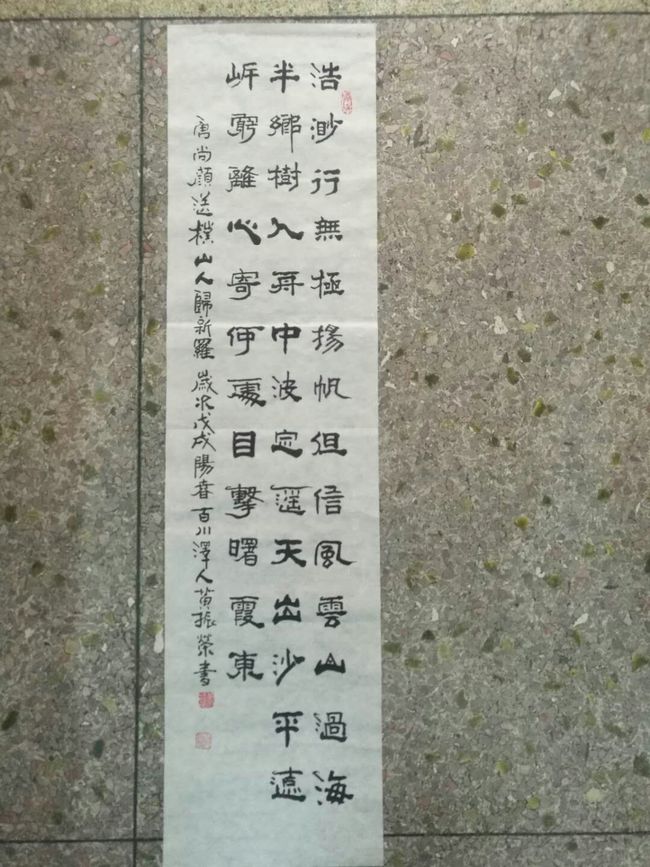 浩渺行無極揚帆但信風雲山過海
半鄉樹入舟中波定遥天出沙平遠
岸窮離心寄何處目擊曙霞東
唐尚顏送樸山人歸新羅 歲次戊戌陽春百川澤人黃振榮書